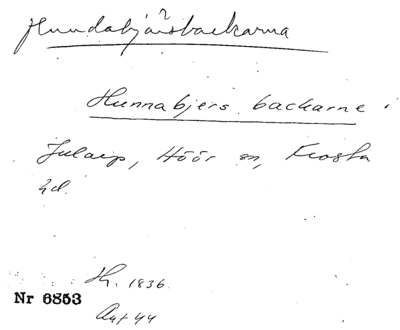 Hundabjärsbackarna
?
Hunnabjers backarne i
Jularp, Höör sn, Frosta
hd.
Hr. 1836.
Nr 6853
Akt 44